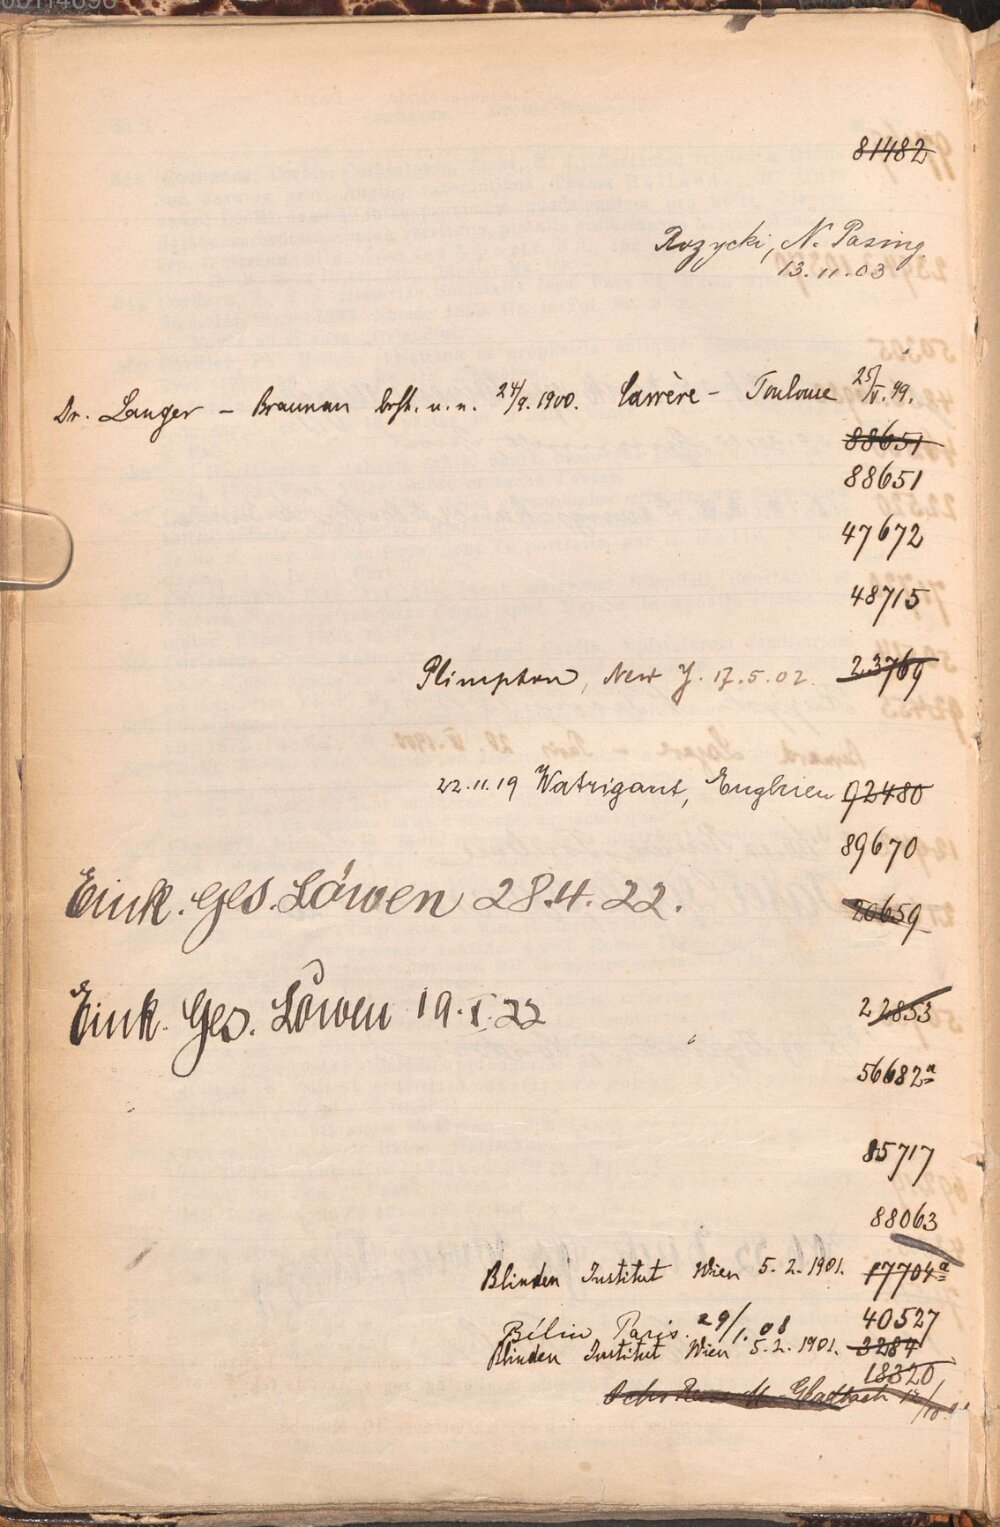 81482
Rozycki, N. Pasing
13.11.03
Dr. Langer – Braunau 24/9. 1900. Carrère – Toulouse 25/V. 99.
88651
88651
47672
48715
Plimpton, New Y. 17.5.02. 23769
22.11.19 Watrigant, Enghien 92480
89670
Eink. Ges. Löwen 28.4.22.
20659
Eink. Ges. Löwen 19.I.22
22853
56682a
85717
88063
Blinden Institut Wien 5.2.1901. 17704a
40527
Bélin Paris. 29/1.08
Blinden Institut Wien 5.2.1901. 3284
18320
M.-Gladbach